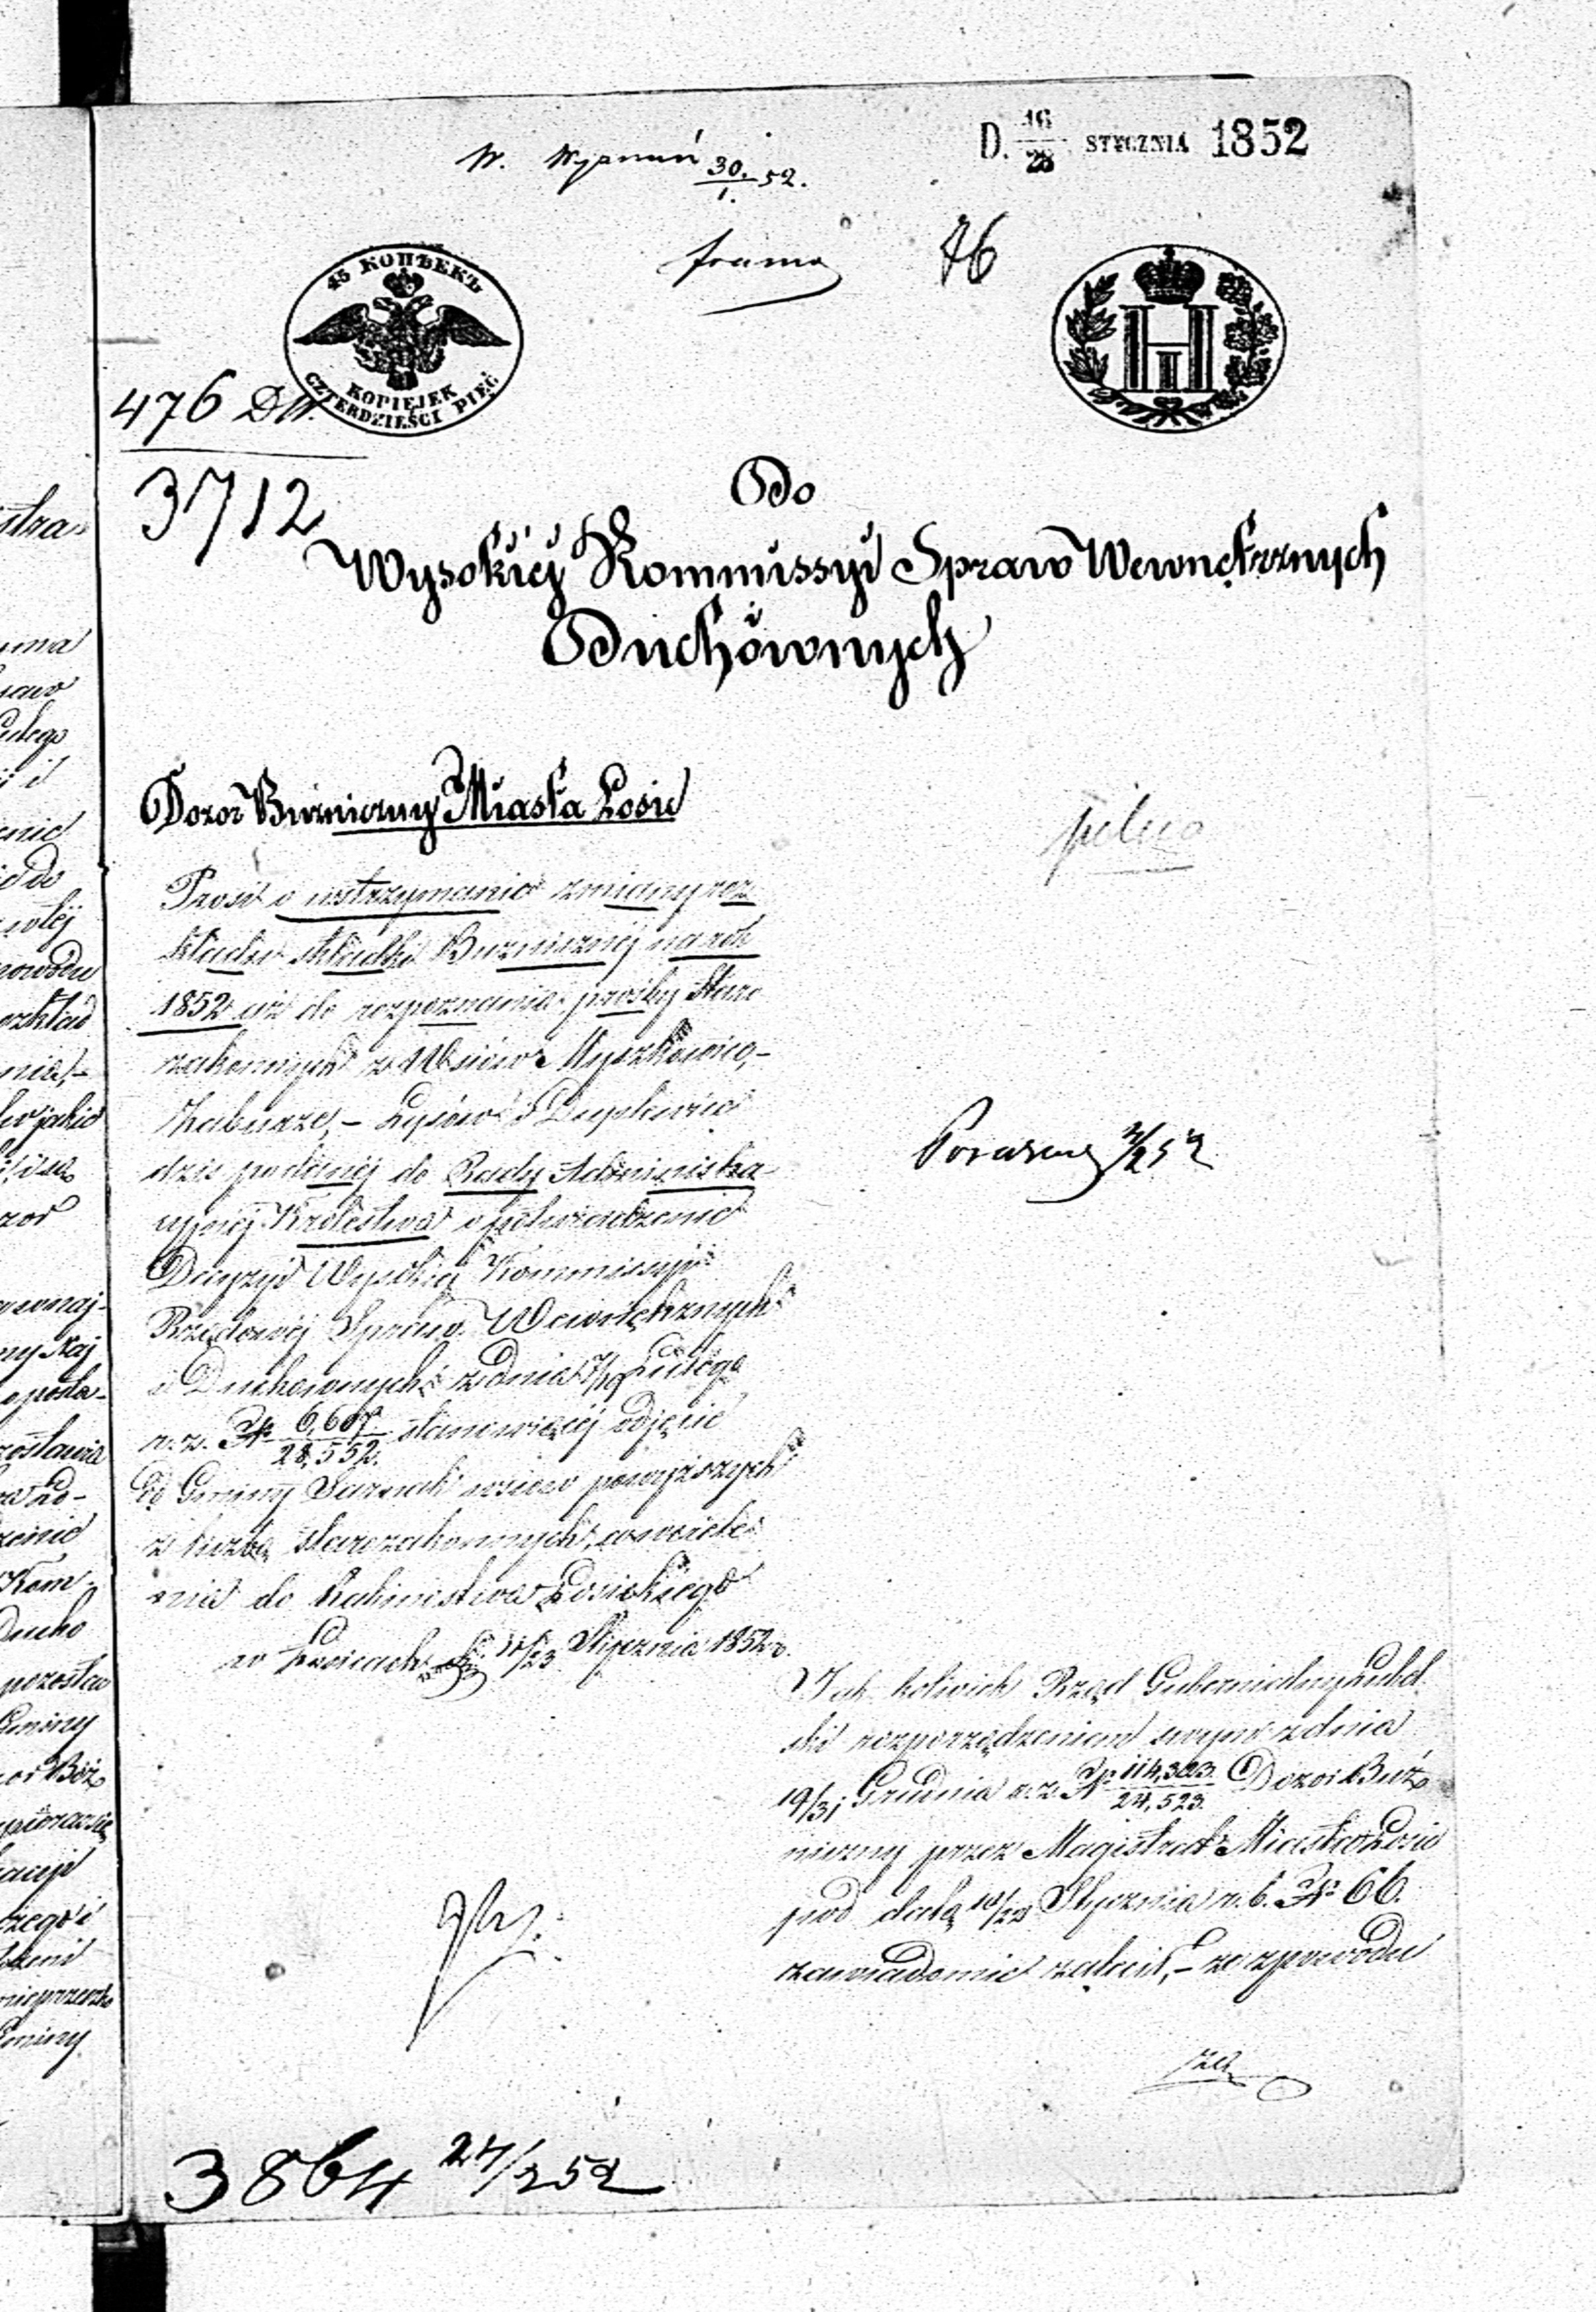 D. 16/28 STYCZNIA 1852
W. 30/1. 52.
76
45 КОПѢЕКЪ
KOPIEJEK
CZTERDZIEŚCI PIĘĆ
Н I
476
3712
Do
Wysokiey Kommissyi Spraw Wewnętrznych
Duchownych
Dozor Bużniczny Miasta Łosic
pilno
Prosi o wstrzymanie zmiany roz
kładu składki Bużnicznéj na rok
1852 aż do rozpoznania prośby Staro
zakonnych z Wsiów Myszkowice,-
Zabuże,- Łysów i
dziś podanéj do Rady Administra
cyjnéj Królestwa o potwierdzenie
Decyzyi Wysokiéj Kommissyi
Rządowéj Spraw Wewnętrznych
i Duchownych z dnia 7/19 Lutego
r. z. N° 6,607/28,552. stanowiącéj odjęcie
od Gminy Sarnaki wsiów powyższych
z liczbą starozakonnych, a wciele-
nia do Rabinostwa Łosickiego
w Łosicach d. 11/23 Stycznia 1852 r.
Jak kolwiek Rząd Gubernialny Lubel
ski rozporządzeniem swym z dnia
19/31 Grudnia r. z. N° 114,303/24,523. Dozór Buż
niczny przez Magistrat Miasta Łosic
pod datą 10/22 Stycznia r. b. N° 66.
zawiadomić zalecił,- że z powodu
3864 24/2 52